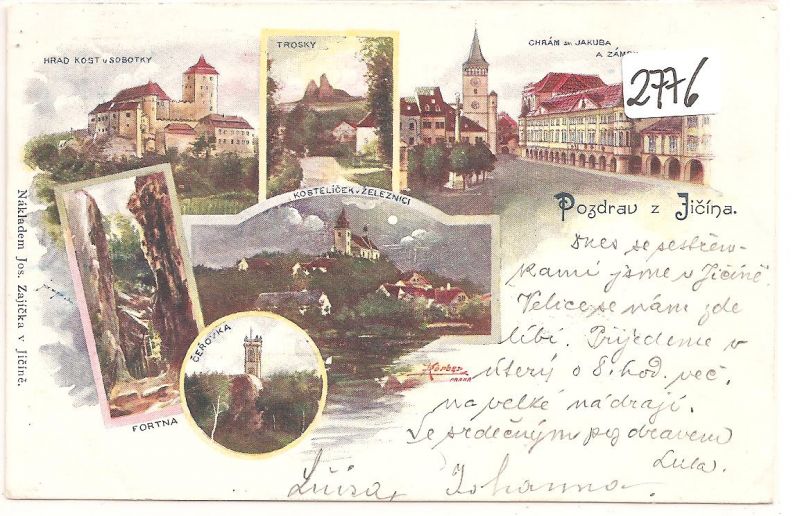 HRAD KOST u SOBOTKY
TROSKY
CHRÁM sv. JAKUBA
A ZÁMEK
2776
KOSTELÍČEK v ŽELEZNICI
Pozdrav z Jičína.
ČEŘOVKA
FORTNA
Körber
PRAHA
Nákladem Jos. Zajíčka v Jičíně.
Dnes se sestřen-
kami jsme v Jičíně.
Velice se nám zde
líbí. Přijedeme v
úterý o 8. hod. več.
na velké nádraží.
Se srdečným pozdravem
Lula.
Luisa, Johanna.